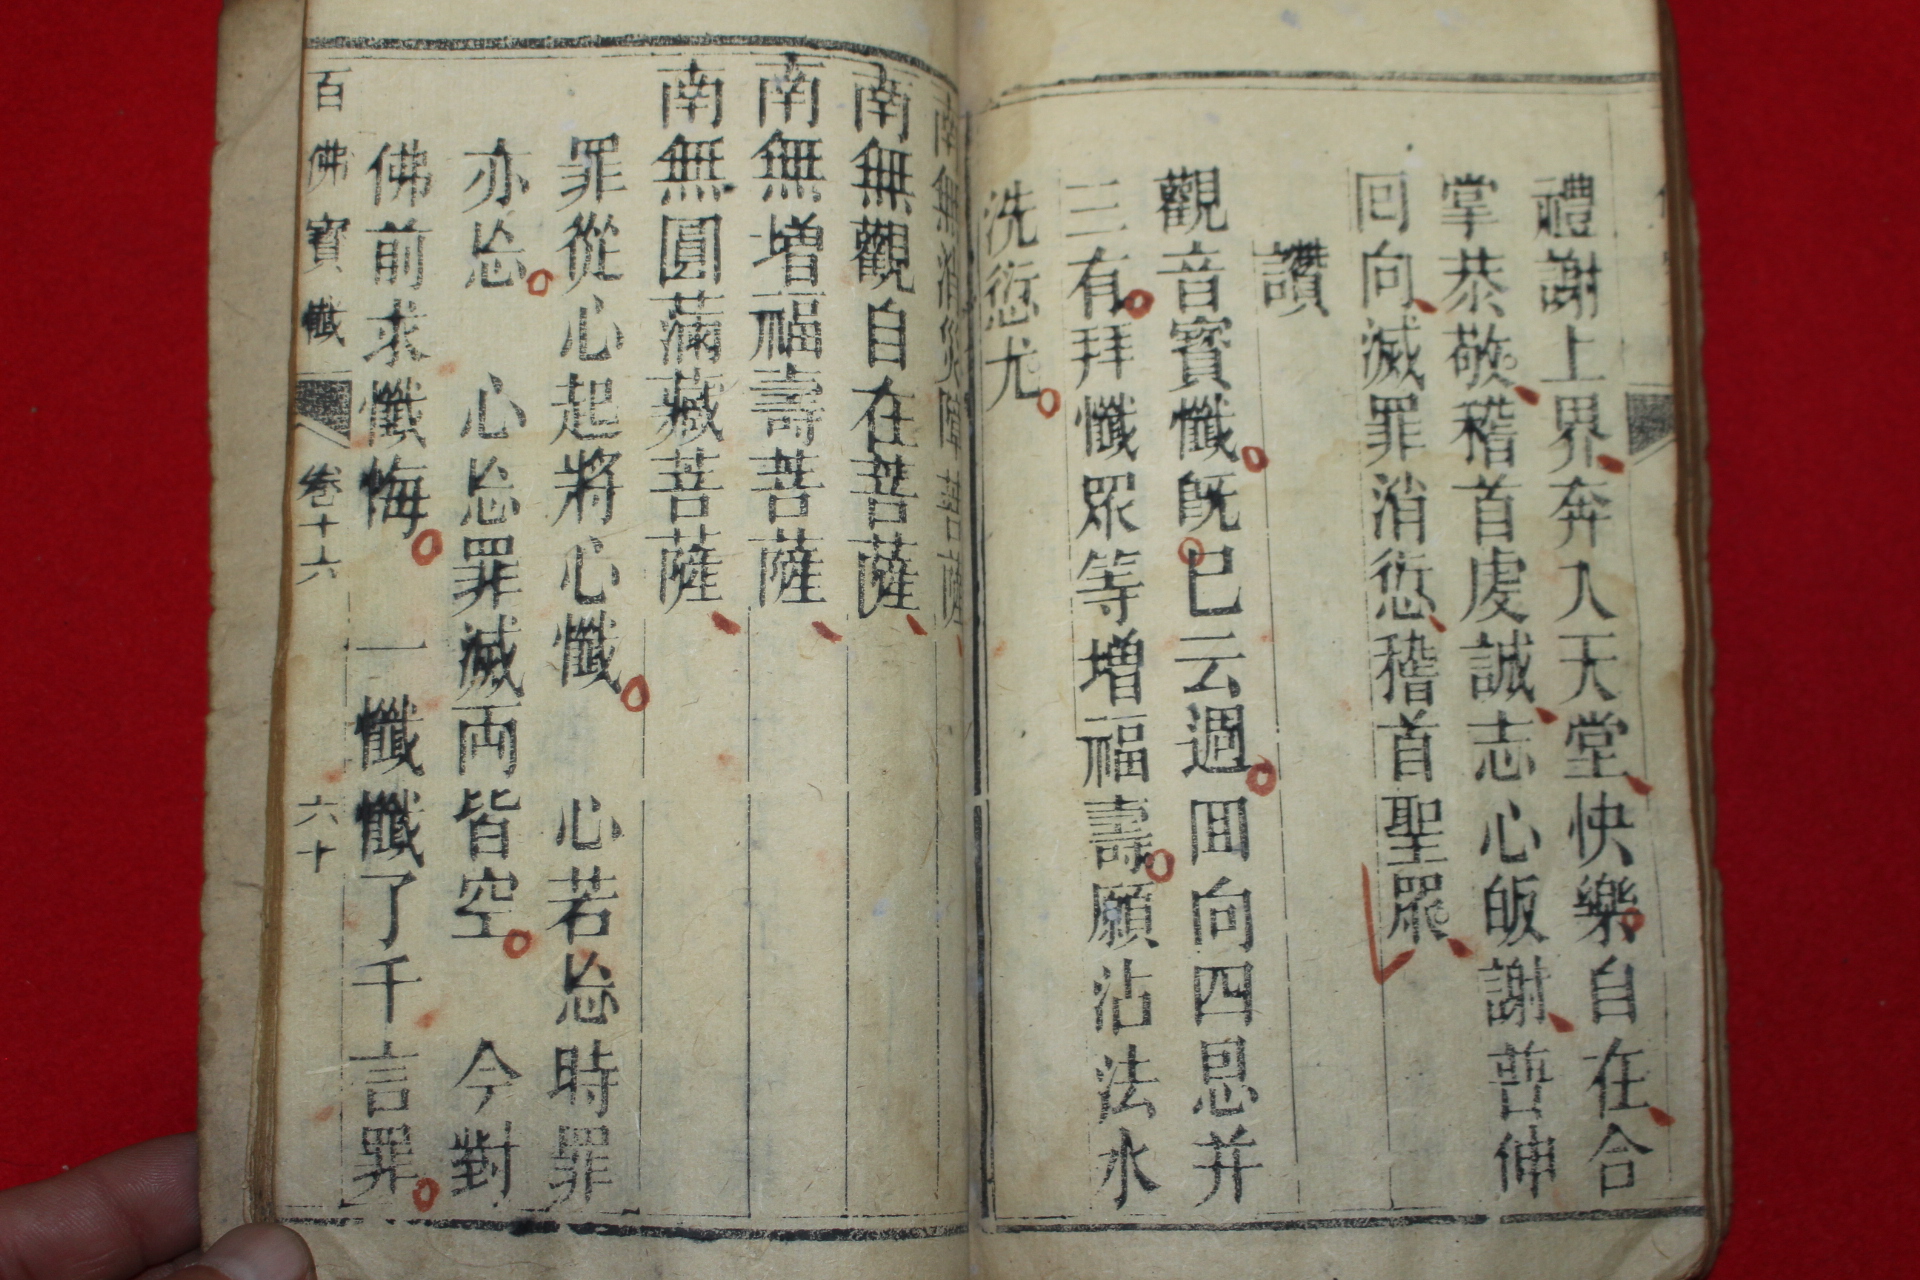 禮謝上界奔入天堂快樂自在合
掌恭敬稽首虔誠志心皈謝啓伸
回向滅罪消愆稽首聖眾
讚
觀音寳懺旣已云週回向四恩并
三有拜懺眾等增福壽願沾法水
洗愆尤
南無消災障菩薩
南無觀自在菩薩
南無增福壽菩薩
南無圓滿藏菩薩
罪從心起將心懺 心若忘時罪
亦忘 心忘罪滅両皆空 今對
佛前求懺悔 一懺懺了千言罪
百佛寳懺 卷十六 六十